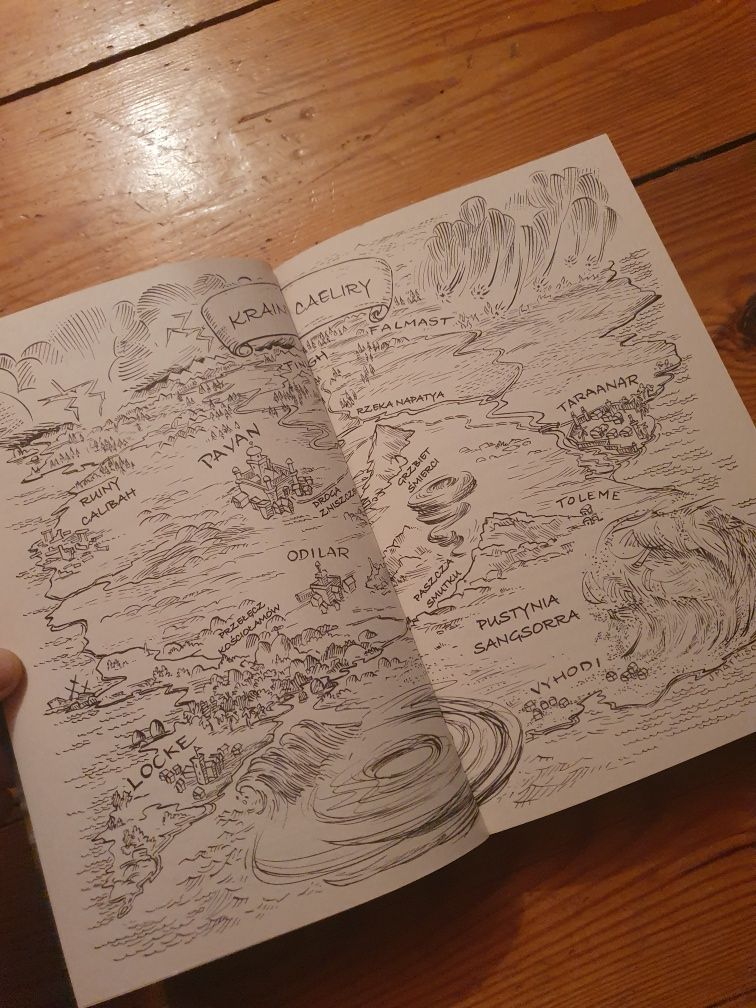 KRAIN CAELIRY
FALMAST
RZEKA NAPATYA
TARAANAR
PAVAN
RUINY
CALIBAH
GRZBIET
ŚMIERCI
DROGA
TOLEME
ODILAR
PASZCZA
SMUTKU
PRZEŁĘCZ
KOŚCIOŁAMÓW
PUSTYNIA
SANGSORRA
VYHODI
LOCKE